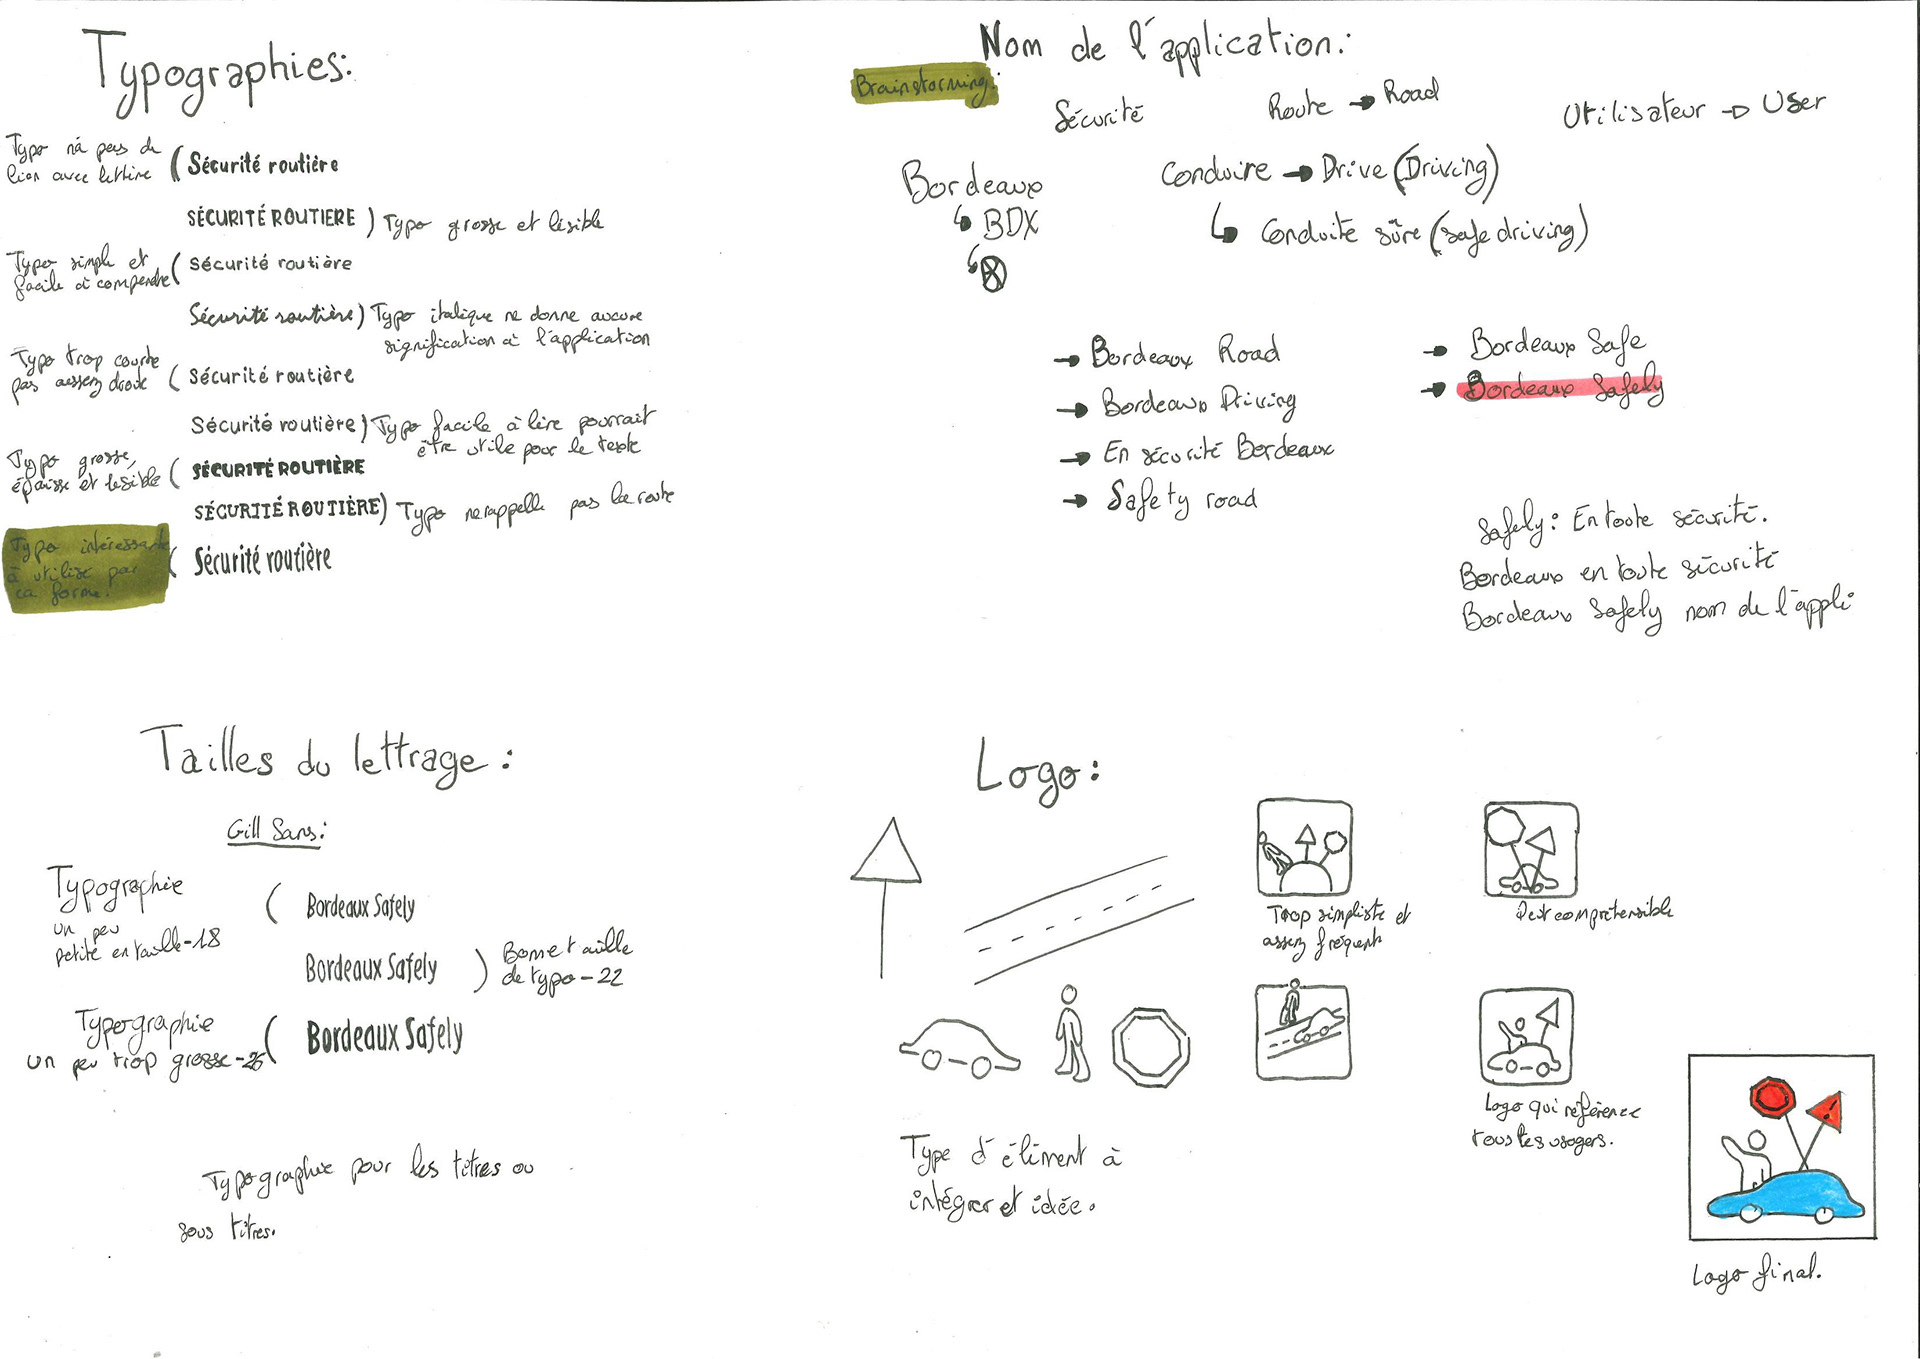 Typographies:
Typo n'a pas de
lien avec lettre
Sécurité routière
SÉCURITÉ ROUTIERE
Typo grosse et lisible
Typo simple et
facile à comprendre
Sécurité routière
Sécurité routière
Typo italique ne donne aucune
signification à l'application
Typo trop courte
pas assez droite
Sécurité routière
Sécurité routière
Typo facile à lire pourrait
être utile pour le texte
Typo grosse,
épaisse et lisible
SÉCURITÉ ROUTIÈRE
SÉCURITÉ ROUTIÈRE
Typo ne rappelle pas la route
Typo intéressante
à utilisé par
ca forme.
Sécurité routière
Nom de l'application:
Brainstorming:
Sécurité
Route → Road
Utilisateur → User
Bordeaux
BDX
Conduire → Drive (Driving)
Conduite sûre (safe driving)
→ Bordeaux Road
→ Bordeaux Driving
→ En sécurité Bordeaux
→ Safety road
→ Bordeaux Safe
→ Bordeaux Safely
Safely: En toute sécurité.
Bordeaux en toute sécurité
Bordeaux Safely nom de l'appli
Tailles du lettrage :
Gill Sans:
Typographie
un peu
petite en taille-18
Bordeaux Safely
Bordeaux Safely
Bonne taille
de typo-22
Typographie
un peu trop grosse-26
Bordeaux Safely
Typographie pour les titres ou
sous titres.
Logo:
Trop simpliste et
assez fréquent
Peut compréhensible
Logo qui référence
tous les usagers.
Type d'élément à
intégrer et idée.
Logo final.